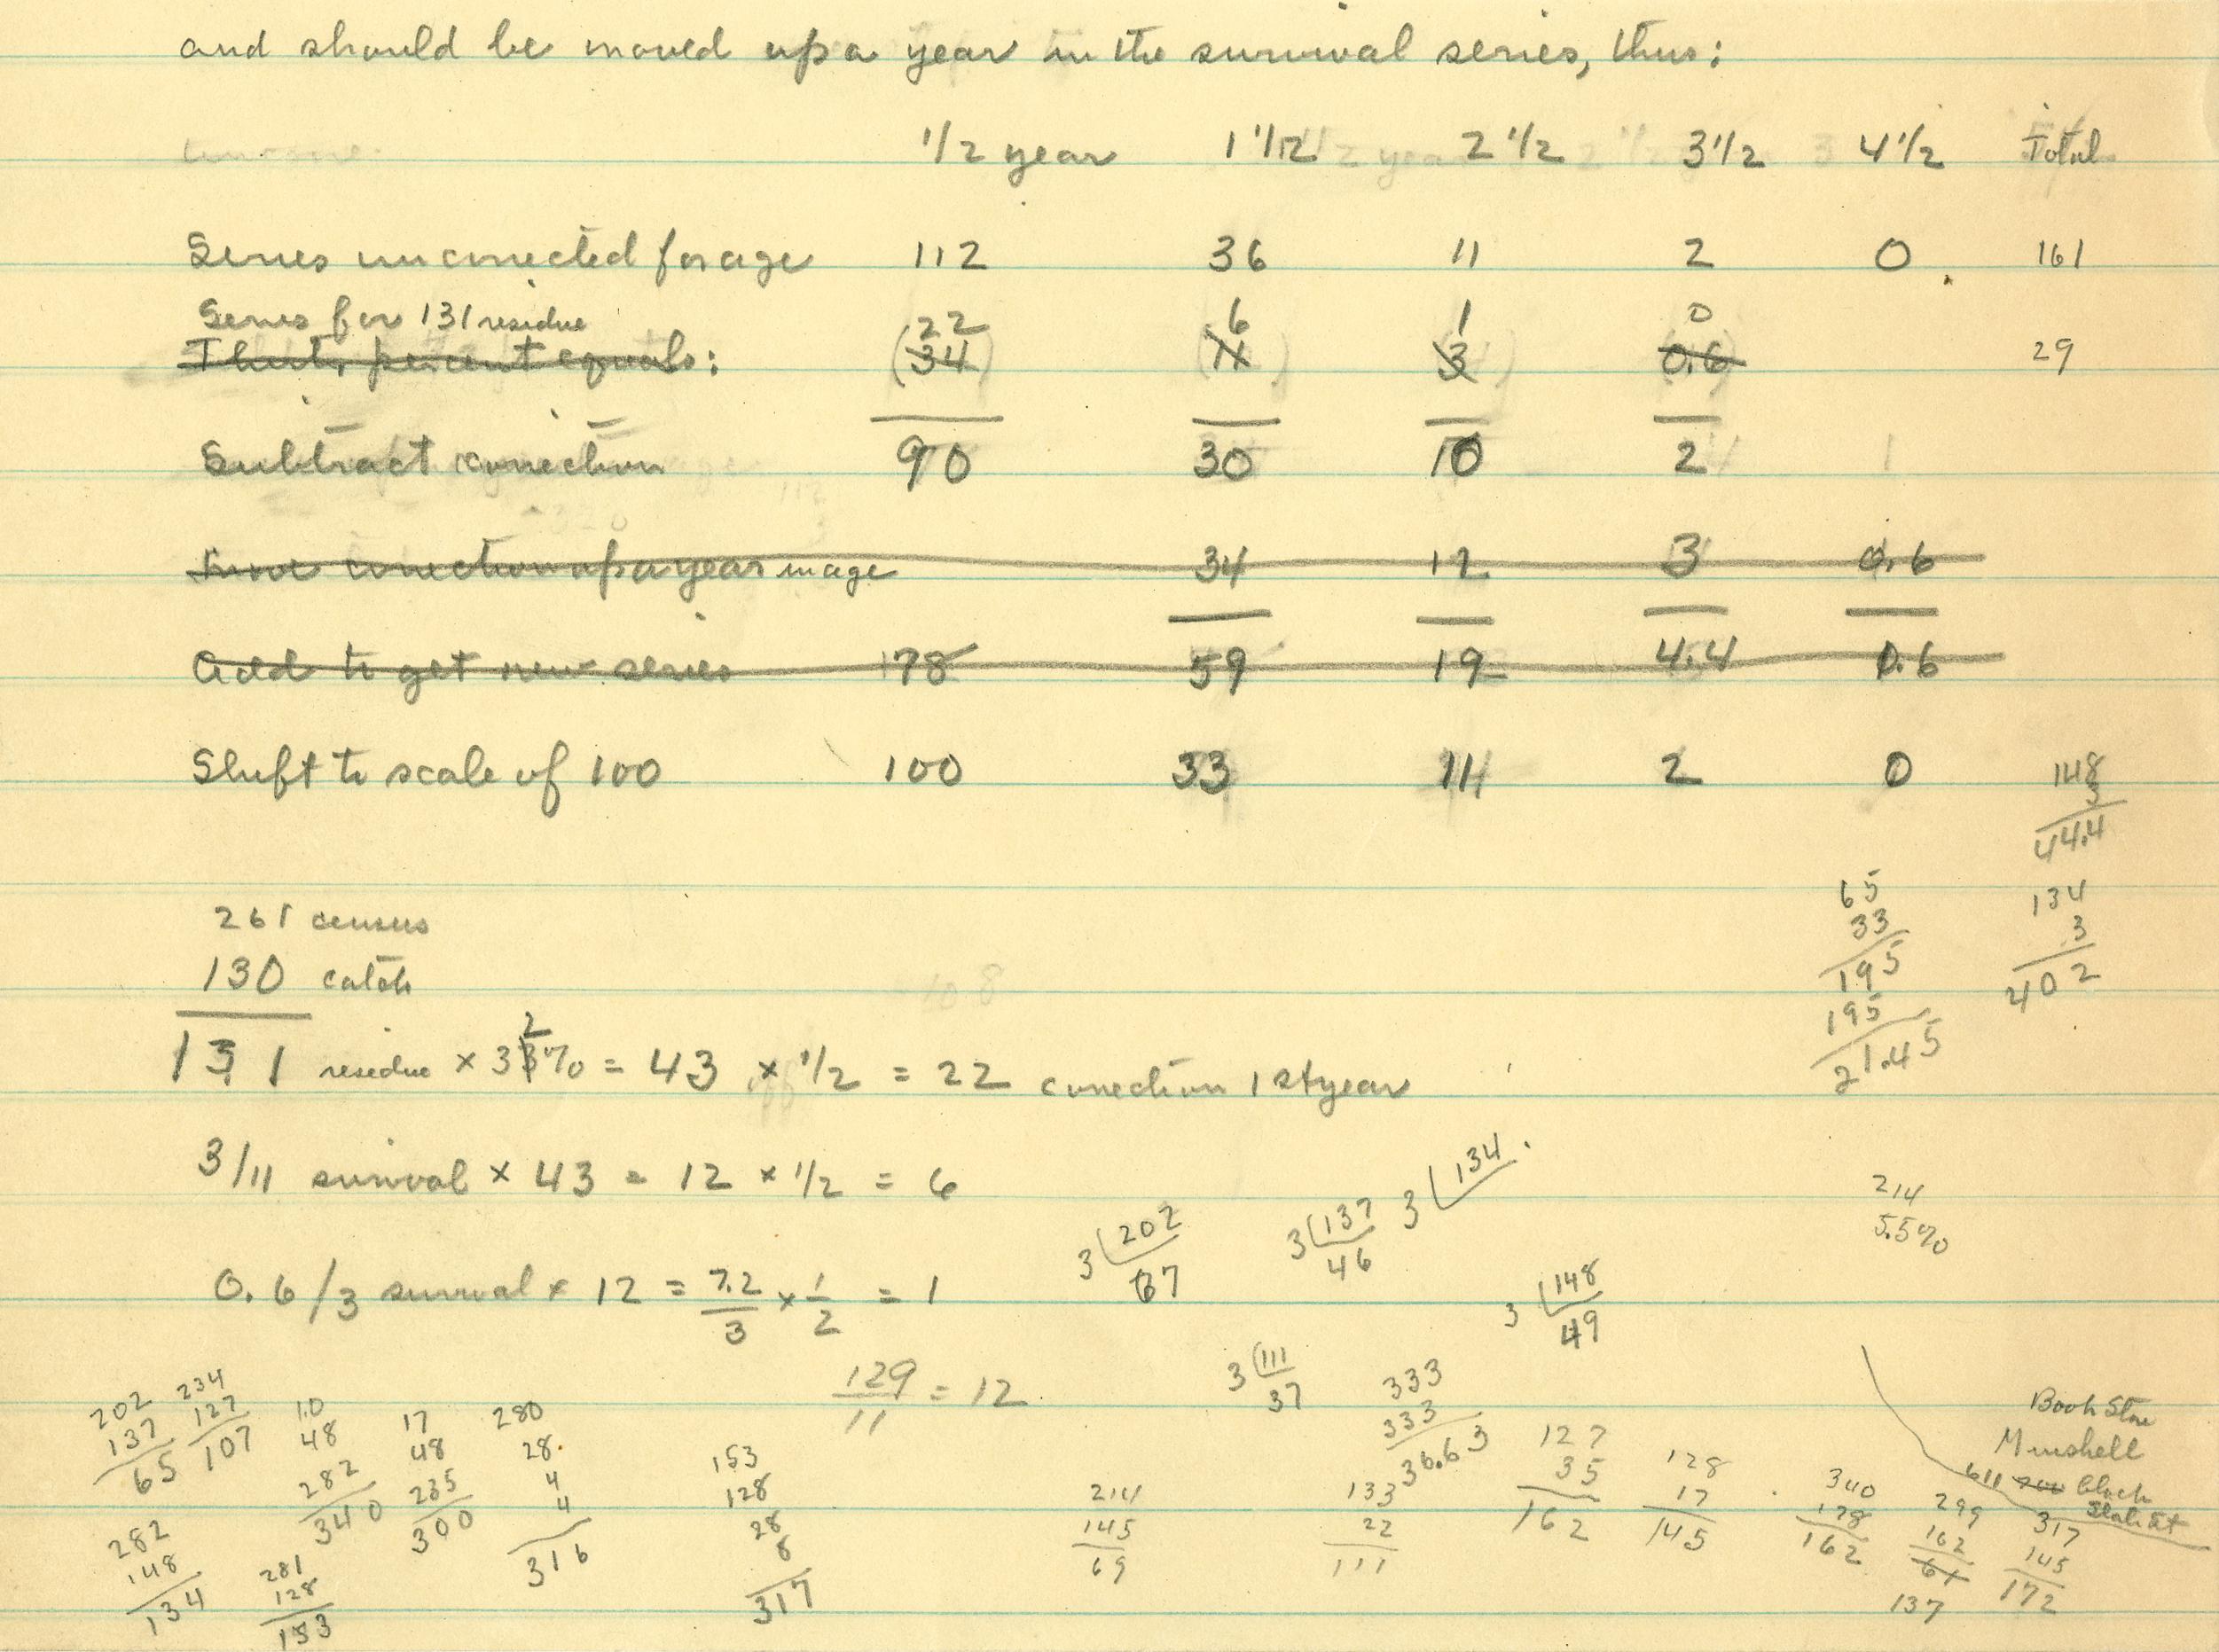 and should be moved up a year in the survival series, thus:
1/2 year 1 1/2 2 1/2 3 1/2 4 1/2 Total
Series uncorrected for age 112 36 11 2 0 161
Series for 131 residue 22 6 1 0
percent equals: (34) 11 3 0.6 29
Subtract correction 90 30 10 2
correction up a year in age 34 12 3 0.6
Add to get new series 78 59 19 4.4 0.6
Shift to scale of 100 100 33 11 2 0
148
3
44.4
261 census
130 catch
131 residue × 33% = 43 × 1/2 = 22 correction 1st year
2
65
33
195
195
21.45
134
3
402
3/11 survival × 43 = 12 × 1/2 = 6
0.6/3 survival × 12 = 7.2/3 × 1/2 = 1
129/11 = 12
3 202
67
3 137
46
3 134
3 148
49
3 111
37
333
333
36.63
214
5.5%
202
137
65
234
127
107
10
48
282
340
17
48
235
300
280
28
4
4
316
282
148
134
281
128
153
153
128
28
8
317
214
145
69
133
22
111
127
35
162
128
17
145
340
178
162
299
162
61
137
317
145
172
Book Store
Minshell
611 700 block
State St